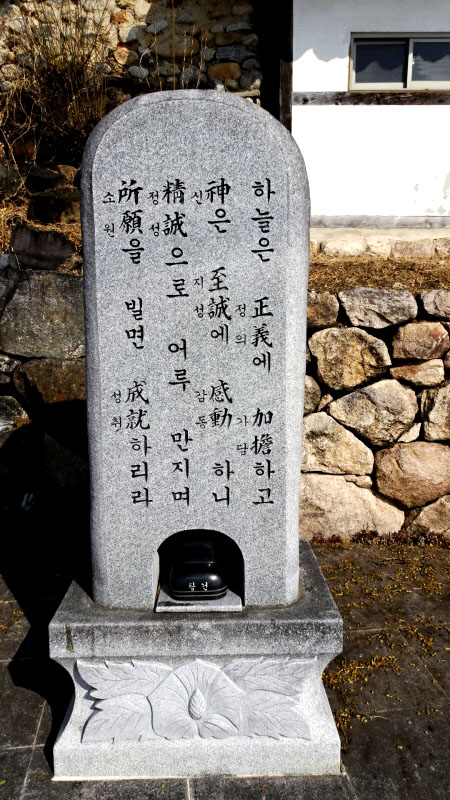 하늘은 正義에 加擔하고
정의 가담
神은 至誠에 感動 하니
신 지성 감동
精誠으로 어루 만지며
정성
所願을 빌면 成就하리라
소원 성취